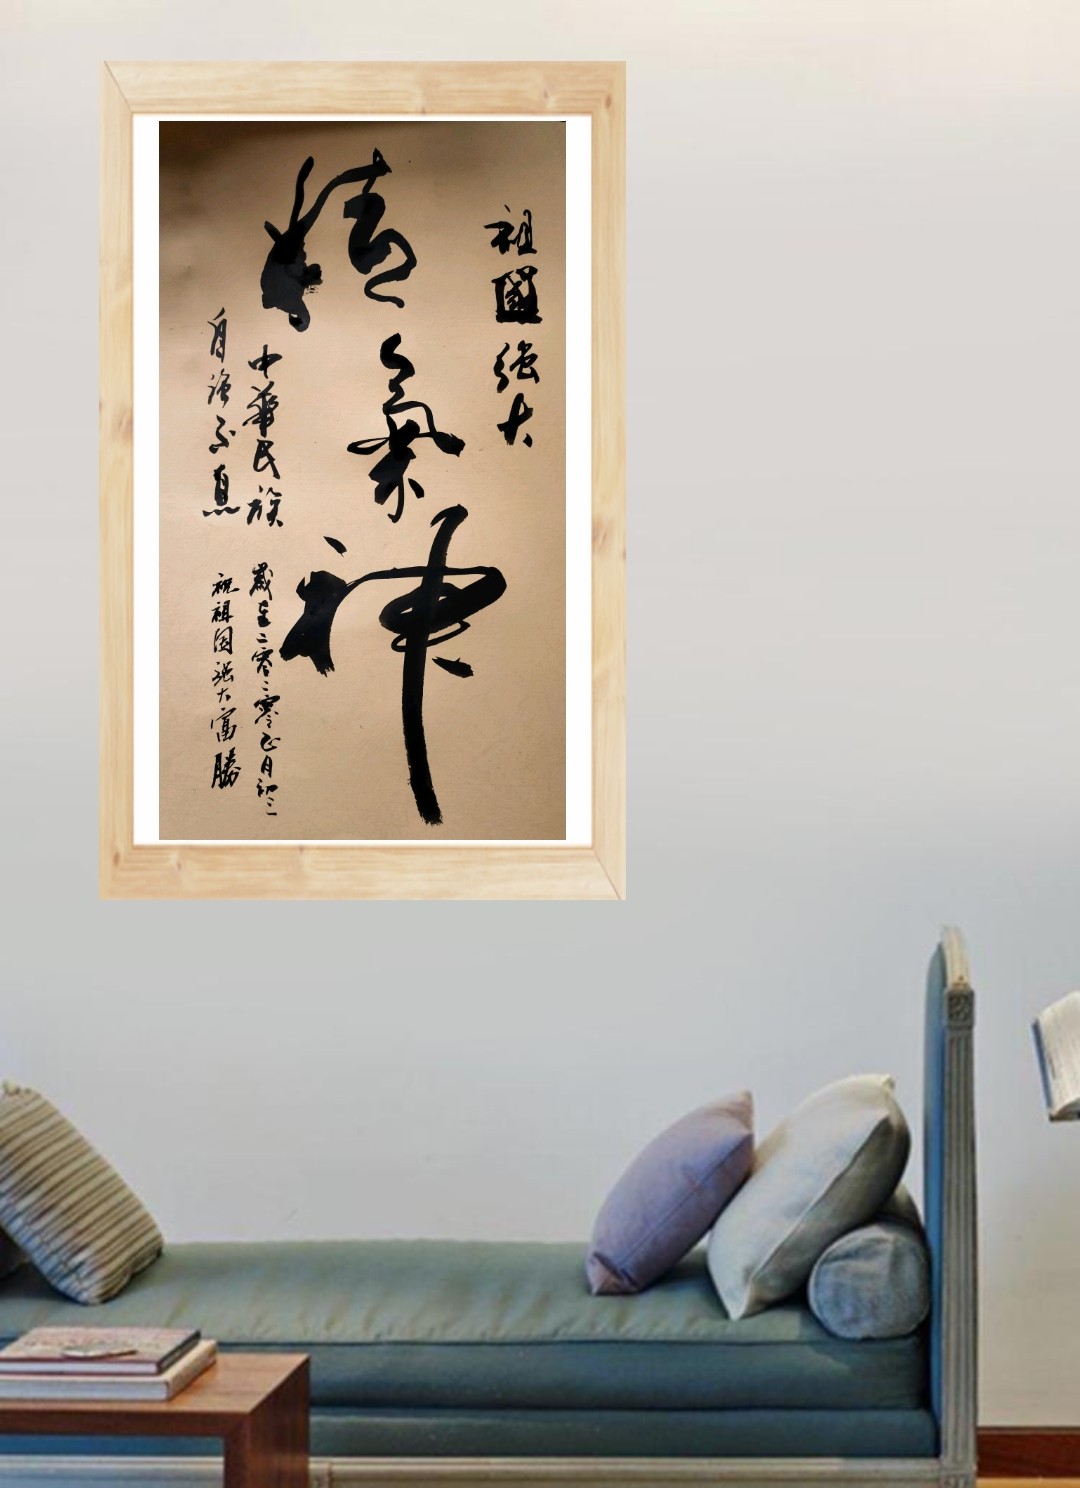 祖國強大
精氣神
中華民族
自強不息
歲在二零二零正月初三
祝祖国强大富勝